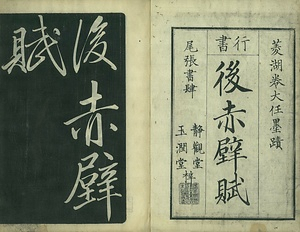 菱湖巻大任墨蹟
行書
後赤壁賦
尾張書肆
靜觀堂
玉潤堂
梓
後赤壁
賦